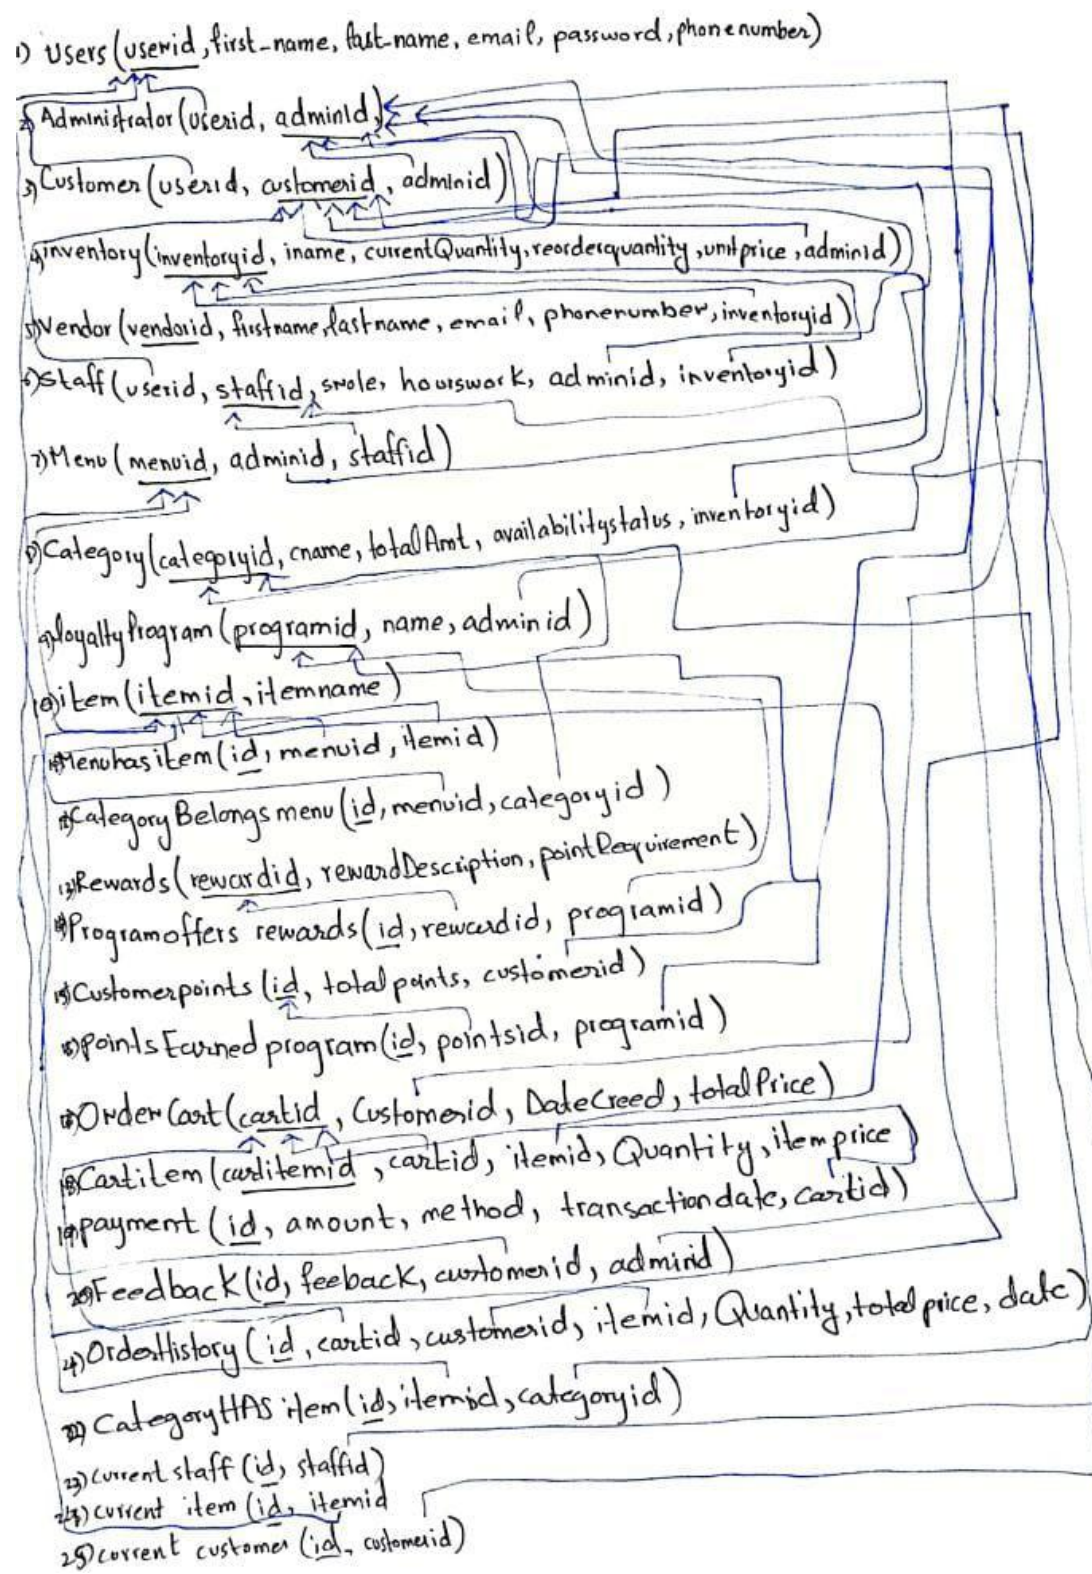 1) Users (userid, first-name, last-name, email, password, phonenumber)
2) Administrator (userid, adminId)
3) Customer (userid, customerid, adminid)
4) inventory (inventoryid, iname, currentQuantity, reorderquantity, unitprice, adminid)
5) Vendor (vendorid, firstname, lastname, email, phonenumber, inventoryid)
6) Staff (userid, staffid, srole, hourswork, adminid, inventoryid)
7) Menu (menuid, adminid, staffid)
8) Category (categoryid, cname, totalAmt, availabilitystatus, inventoryid)
9) loyaltyProgram (programid, name, adminid)
10) item (itemid, itemname)
11) Menuhasitem (id, menuid, itemid)
12) Category Belongs menu (id, menuid, categoryid)
13) Rewards (rewardid, rewardDescription, pointRequirement)
14) Programoffers rewards (id, rewardid, programid)
15) Customerpoints (id, total points, customerid)
16) points Earned program (id, pointsid, programid)
17) Order Cart (cartid, Customerid, DateCreed, totalPrice)
18) Cartitem (cartitemid, cartid, itemid, Quantity, itemprice)
19) payment (id, amount, method, transactiondate, cartid)
20) Feedback (id, feeback, customerid, adminid)
21) OrderHistory (id, cartid, customerid, itemid, Quantity, total price, date)
22) CategoryHAS item (id, itemid, categoryid)
23) current staff (id, staffid)
24) current item (id, itemid
25) current customer (id, customerid)